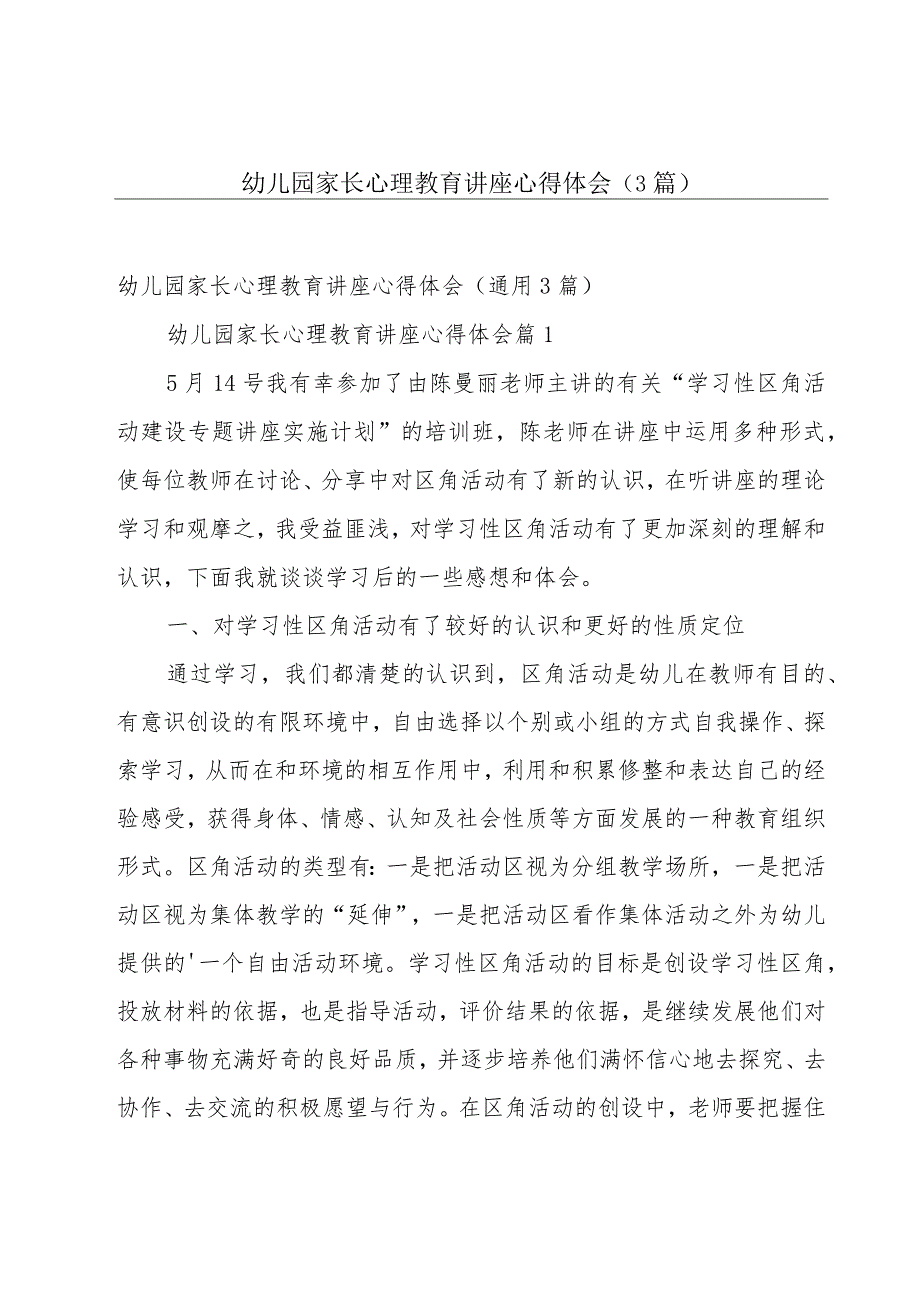 幼儿园家长心理教育讲座心得体会（3篇）
幼儿园家长心理教育讲座心得体会（通用3篇）
幼儿园家长心理教育讲座心得体会篇1
5月14号我有幸参加了由陈曼丽老师主讲的有关“学习性区角活
动建设专题讲座实施计划”的培训班，陈老师在讲座中运用多种形式，
使每位教师在讨论、分享中对区角活动有了新的认识，在听讲座的理论
学习和观摩之，我受益匪浅，对学习性区角活动有了更加深刻的理解和
认识，下面我就谈谈学习后的一些感想和体会。
一、对学习性区角活动有了较好的认识和更好的性质定位
通过学习，我们都清楚的认识到，区角活动是幼儿在教师有目的、
有意识创设的有限环境中，自由选择以个别或小组的方式自我操作、探
索学习，从而在和环境的相互作用中，利用和积累修整和表达自己的经
验感受，获得身体、情感、认知及社会性质等方面发展的一种教育组织
形式。区角活动的类型有：一是把活动区视为分组教学场所，一是把活
动区视为集体教学的“延伸”，一是把活动区看作集体活动之外为幼儿
提供的'一个自由活动环境。学习性区角活动的目标是创设学习性区角，
投放材料的依据，也是指导活动，评价结果的依据，是继续发展他们对
各种事物充满好奇的良好品质，并逐步培养他们满怀信心地去探究、去
协作、去交流的积极愿望与行为。在区角活动的创设中，老师要把握住